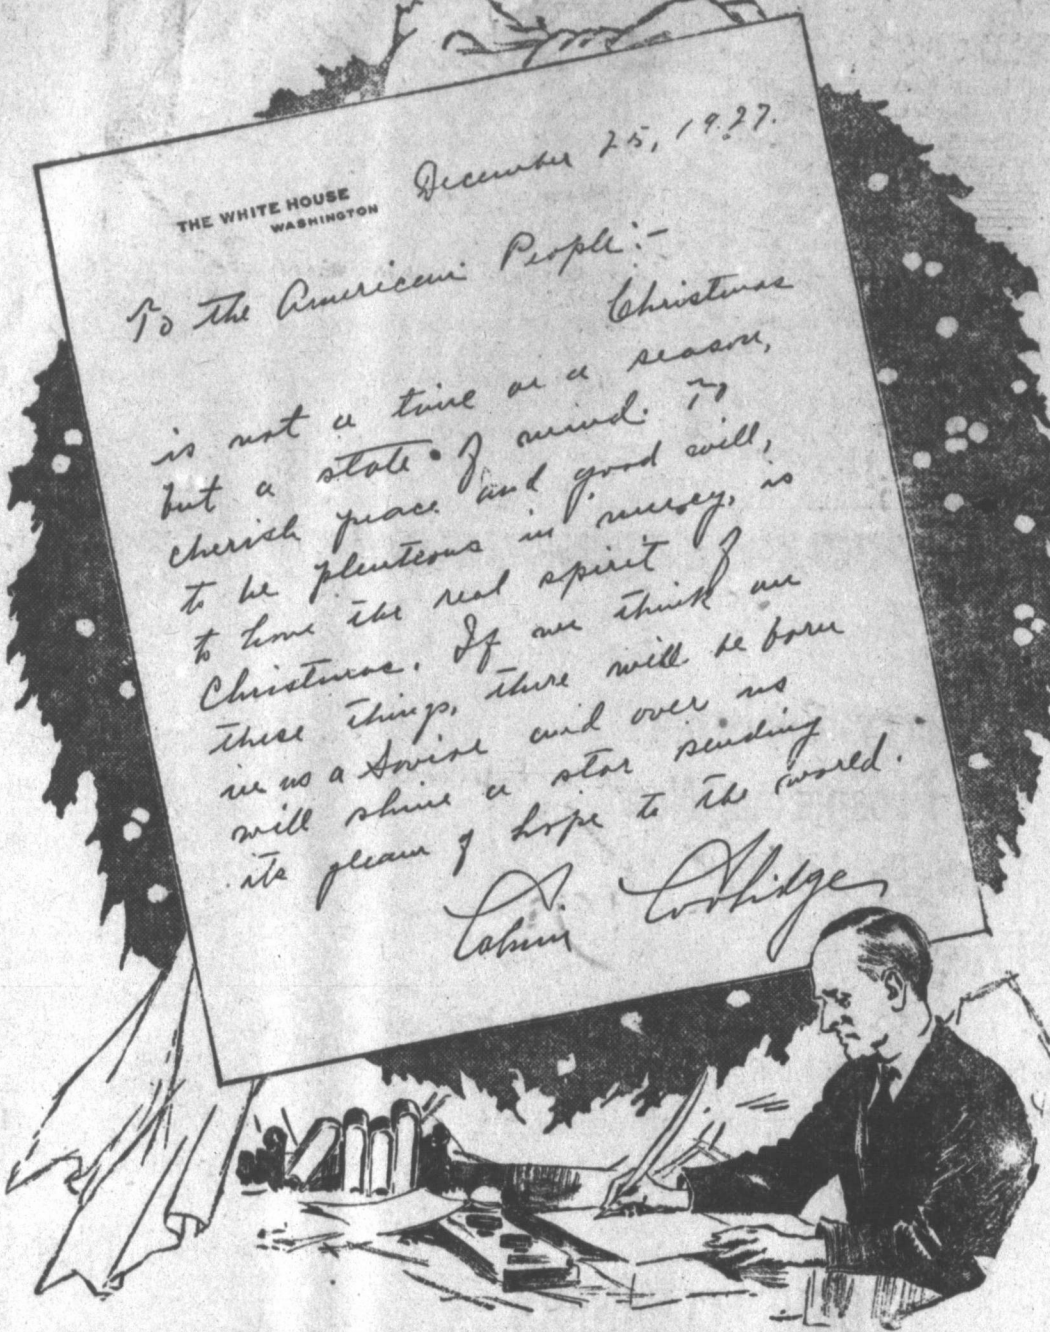 THE WHITE HOUSE
WASHINGTON
December 25, 1927.
To the American People:-
Christmas
is not a time or a season,
but a state of mind. To
cherish peace and good will,
to be plenteous in mercy, is
to have the real spirit of
Christmas. If we think on
these things, there will be born
in us a Savior and over us
will shine a star sending
its gleam of hope to the world.
Calvin Coolidge